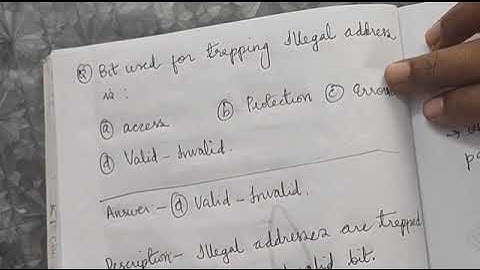 Q Bit used for trapping illegal address
is :
(a) access (b) Protection (c) Error
(d) Valid - Invalid.
Answer - (d) Valid - Invalid.
Description - Illegal addresses are trapped
valid bit.